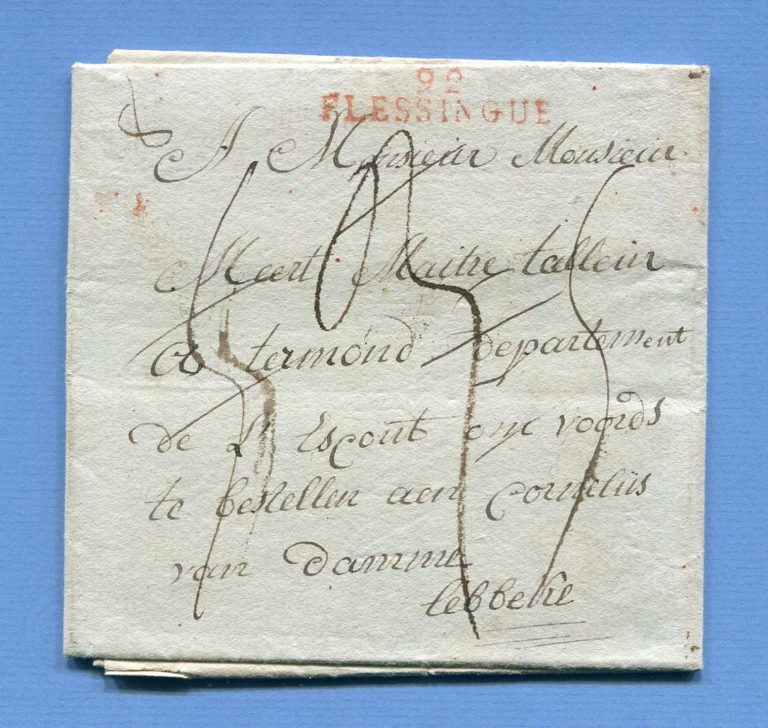 92
FLESSINGUE
A Monsieur Monsieur
Meert Maitre tallein
a termond departement
de L'Escout om voords
te bestellen aen Cornelis
van Damme
Lebbeke